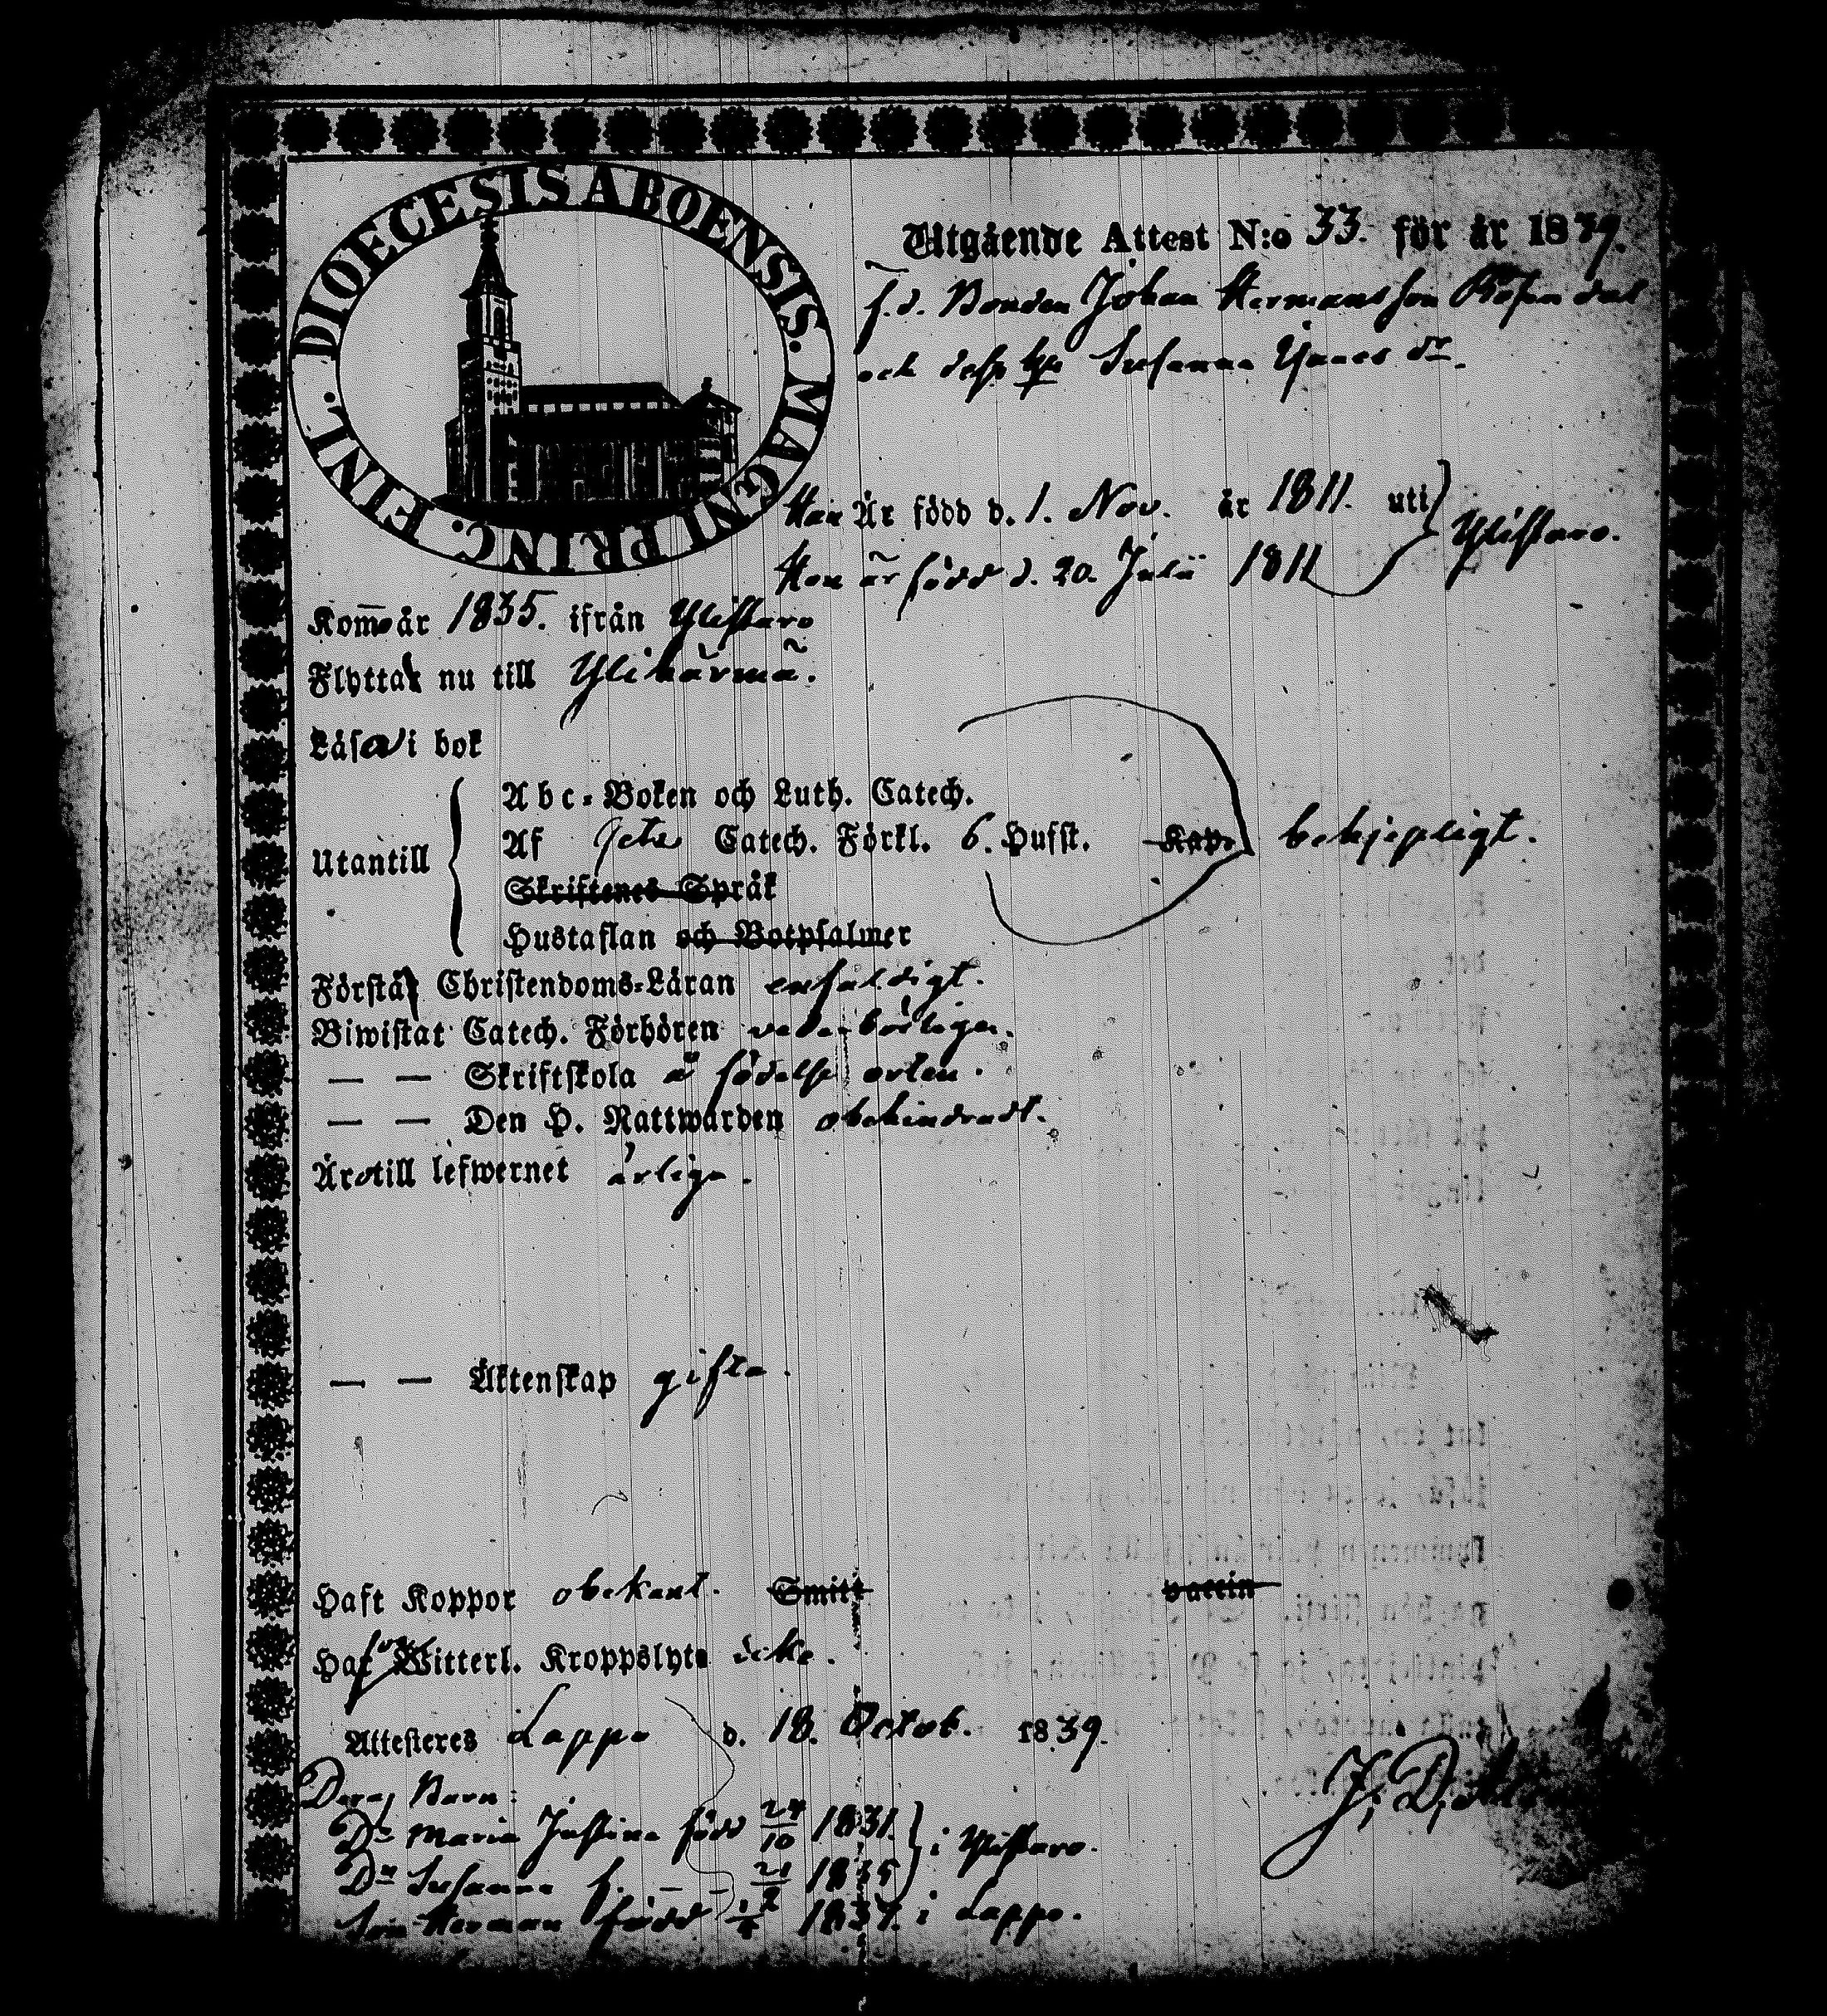 DIOECESIS ABOENSIS. MAGNI PRINC. FINL.
Utgående Attest N:o 33. för år 1839.
f.d. Bonden Johan Hermansson Rosendal
och dess Susanna dr.
Han Är född d. 1. Nov. år 1811. uti
Hon är född d. 20. Julii 1811
Ylistaro.
Kommo år 1835. ifrån Ylistaro
Flytta nu till Ylihärmä.
Läsa i bok
Utantill
Abc-Boken och Luth. Catech.
Af Catech. Förkl. 6. Hufst. Kap.
Skriftenes Språk
Hustaflan och Botpsalmer
behjepligt.
Förstå Christendoms-Läran enfaldigt.
Biwistat Catech. Förhören vederbörligen.
— — Skriftskola å födelse orten.
— — Den H. Nattwarden obehindradt.
Äro till lefwernet ärliga.
— — Äktenskap gifta.
Haft Koppor obekant. Smitt vaccin
Witterl. Kroppslyte icke.
Attesteres Lappo d. 18. Octob. 1839.
J. D.
Deras Barn:
Dr Maria Justina född 24/10 1831.
Dr Susanna f. — — 21/2 1835
i Ylistaro.
Son Herman född 1837. i Lappo.